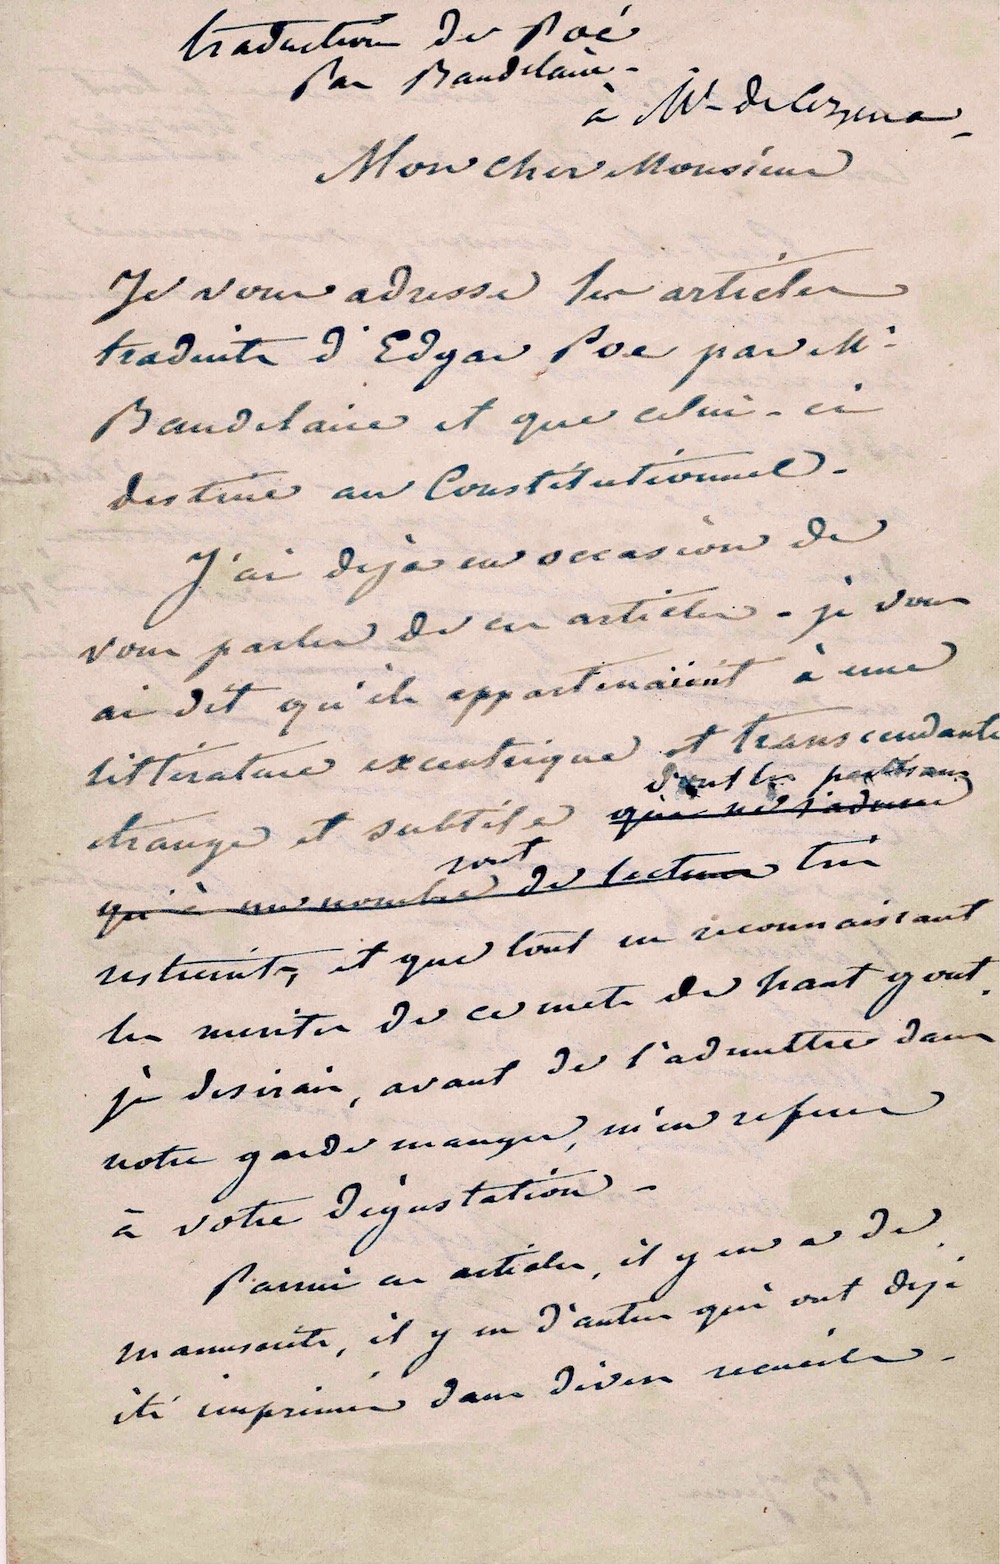 traduction de Poé
Par Baudelaire -
à Mr de Cezena -
Mon cher Monsieur
Je vous adresse les articles
traduits d'Edgar Poe par Mr
Baudelaire et que celui-ci
destine au Constitutionnel -
J'ai déjà eu occasion de
vous parler de ces articles - je vous
ai dit qu'ils appartenaient à une
littérature excentrique et transcendante
dont les partisans
étrange et subtile qui ne s'adresse
sont
qu'à un nombre de lecteurs très
restreints, et que tout en reconnaissant
les merites de ce mets de haut gout,
je desirais, avant de l'admettre dans
notre garde manger, m'en referer
à votre dégustation -
Parmi ces articles, il y en a de
manuscrits, il y en d'autres qui ont déjà
été imprimés dans divers recueils -